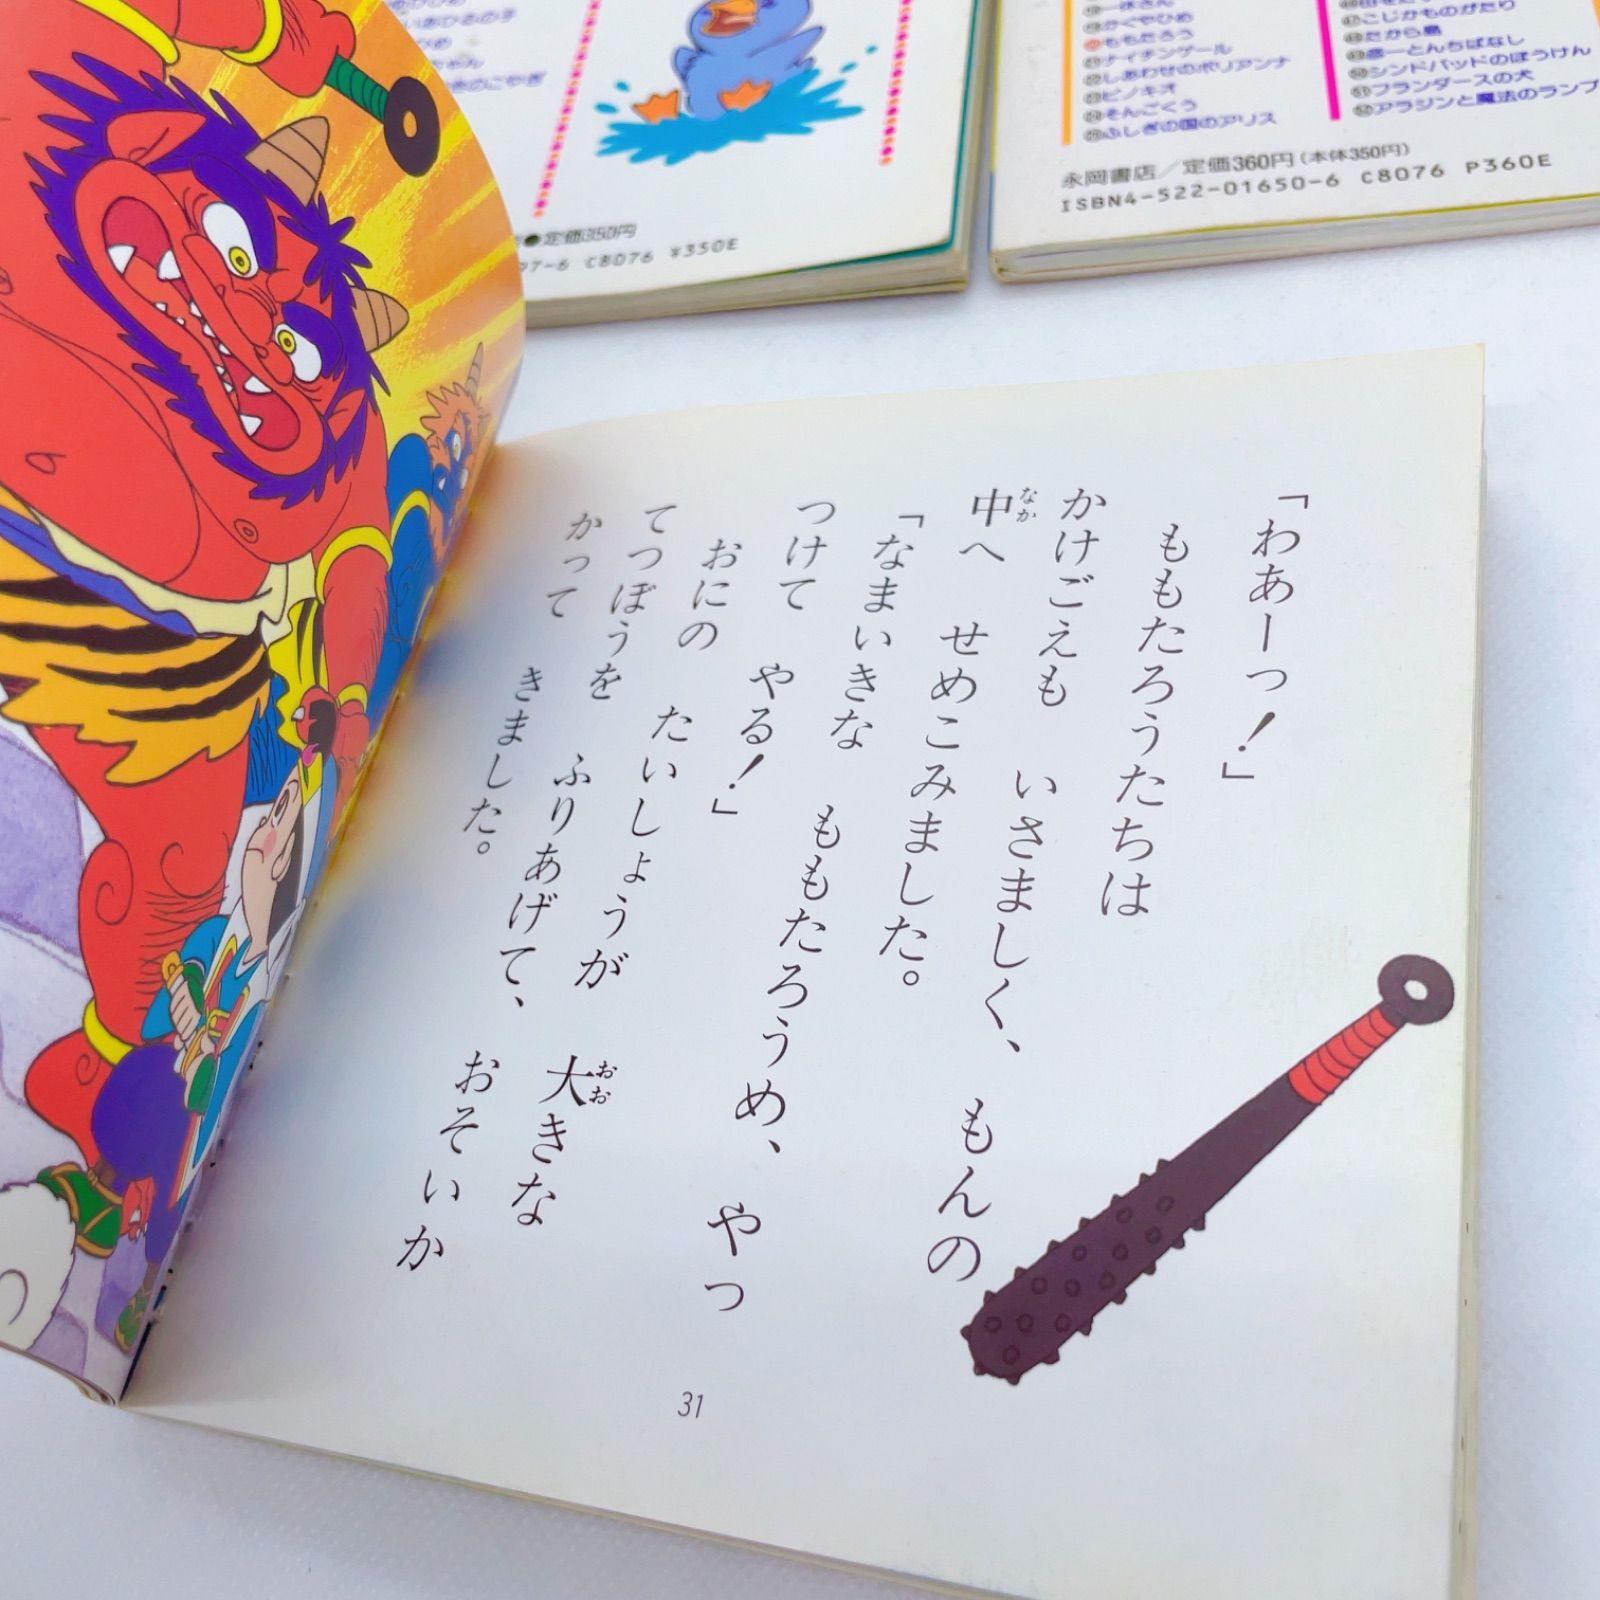 「わあーっ！」
ももたろうたちは
かけごえも　いさましく、　もんの
中へ　せめこみました。
なか
「なまいきな　ももたろうめ、　やっ
つけて　やる！」
おにの　たいしょうが
てつぼうを　ふりあげて、　大きな
おお
かって　きました。　おそいか
31
かぐやひめ
ももたろう
ナイチンゲール
しあわせのポリアンナ
ピノキオ
そんごくう
ふしぎの国のアリス
こじかものがたり
たから島
彦一とんちばなし
シンドバッドのぼうけん
フランダースの犬
アラジンと魔法のランプ
永岡書店／定価360円（本体350円）
ISBN4-522-01650-6 C8076 P360E
●定価350円
97-6 C8076 ¥350E